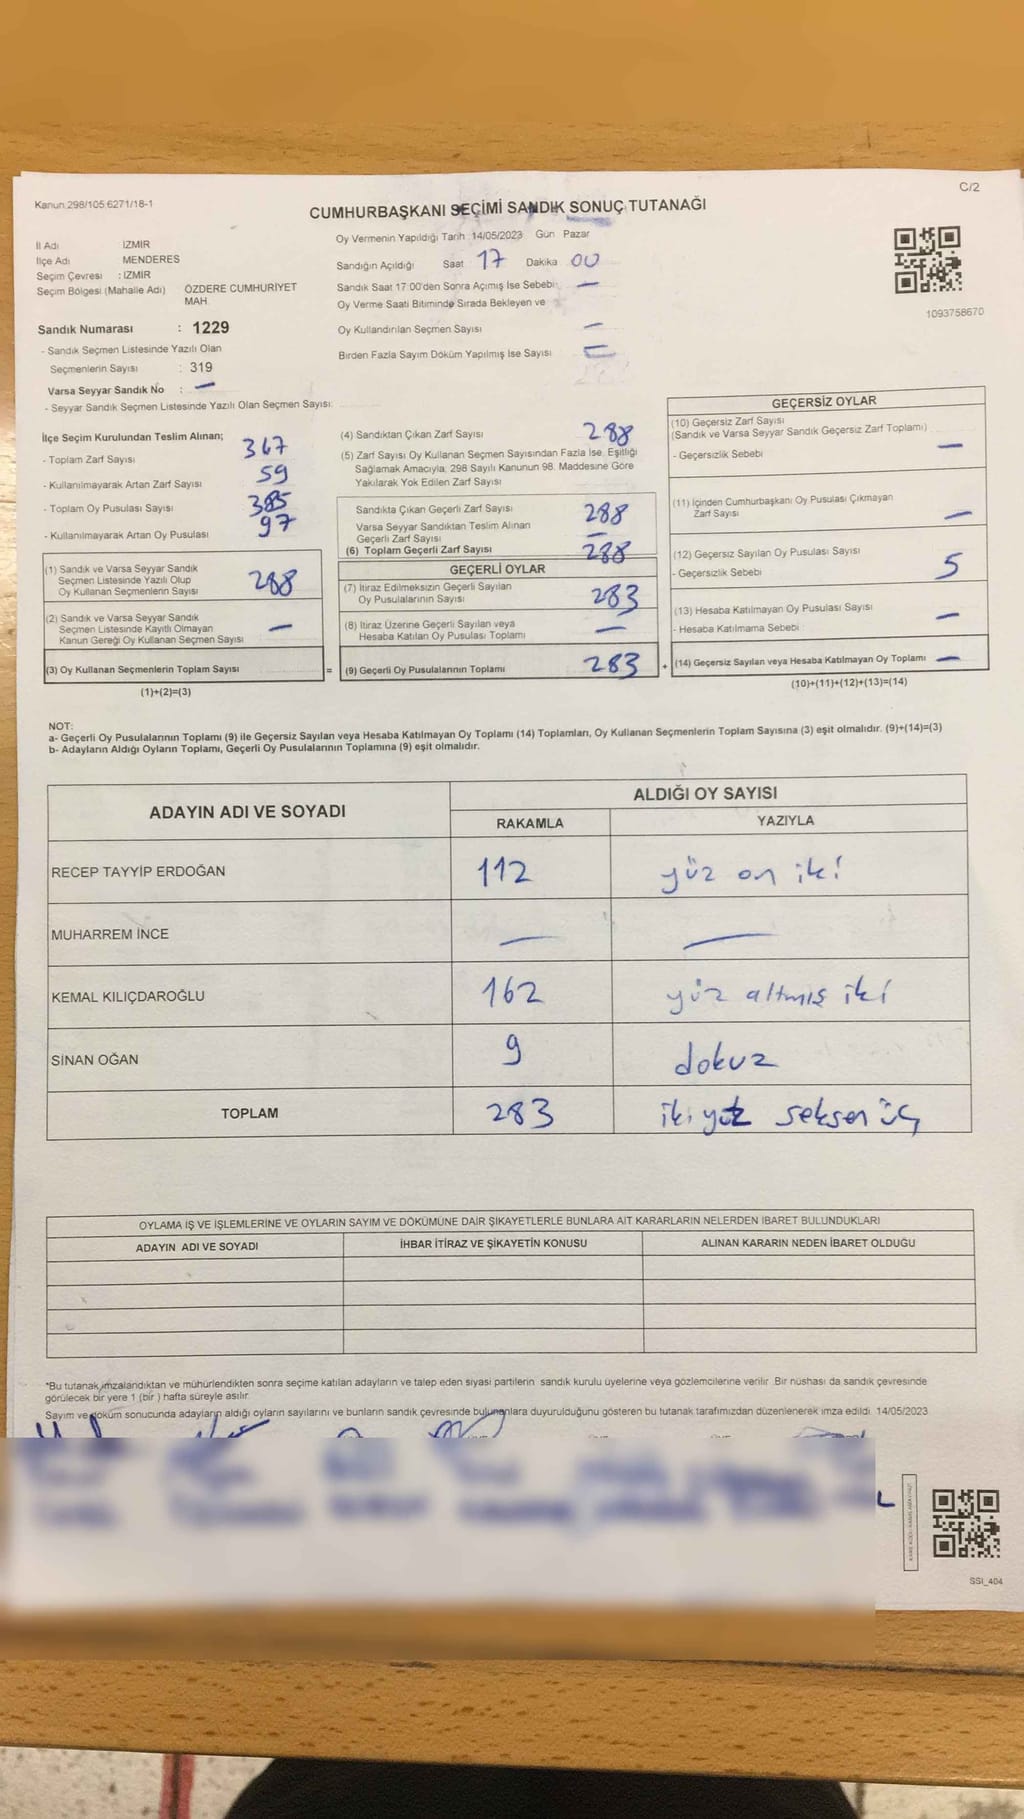 C/2
Kanun 298/105 6271/18-1
CUMHURBAŞKANI SEÇİMİ SANDIK SONUÇ TUTANAĞI
İl Adı İZMİR
İlçe Adı MENDERES
Seçim Çevresi : İZMİR
Seçim Bölgesi (Mahalle Adı) ÖZDERE CUMHURİYET MAH.
Sandık Numarası : 1229
- Sandık Seçmen Listesinde Yazılı Olan
Seçmenlerin Sayısı : 319
Varsa Seyyar Sandık No : —
- Seyyar Sandık Seçmen Listesinde Yazılı Olan Seçmen Sayısı:
Oy Vermenin Yapıldığı Tarih 14/05/2023 Gün Pazar
Sandığın Açıldığı Saat 17 Dakika 00
Sandık Saat 17:00'den Sonra Açımış İse Sebebi: —
Oy Verme Saati Bitiminde Sırada Bekleyen ve
Oy Kullandırılan Seçmen Sayısı —
Birden Fazla Sayım Döküm Yapılmış İse Sayısı
1093758670
İlçe Seçim Kurulundan Teslim Alınan;
- Toplam Zarf Sayısı 367
- Kullanılmayarak Artan Zarf Sayısı 59
- Toplam Oy Pusulası Sayısı 385
- Kullanılmayarak Artan Oy Pusulası 97
(1) Sandık ve Varsa Seyyar Sandık
Seçmen Listesinde Yazılı Olup
Oy Kullanan Seçmenlerin Sayısı 288
(2) Sandık ve Varsa Seyyar Sandık
Seçmen Listesinde Kayıtlı Olmayan
Kanun Gereği Oy Kullanan Seçmen Sayısı —
(3) Oy Kullanan Seçmenlerin Toplam Sayısı =
(1)+(2)=(3)
(4) Sandıktan Çıkan Zarf Sayısı 288
(5) Zarf Sayısı Oy Kullanan Seçmen Sayısından Fazla İse, Eşitliği
Sağlamak Amacıyla, 298 Sayılı Kanunun 98. Maddesine Göre
Yakılarak Yok Edilen Zarf Sayısı
Sandıkta Çıkan Geçerli Zarf Sayısı 288
Varsa Seyyar Sandıktan Teslim Alınan
Geçerli Zarf Sayısı —
(6) Toplam Geçerli Zarf Sayısı 288
GEÇERLİ OYLAR
(7) İtiraz Edilmeksizin Geçerli Sayılan
Oy Pusulalarının Sayısı 283
(8) İtiraz Üzerine Geçerli Sayılan veya
Hesaba Katılan Oy Pusulası Toplamı —
(9) Geçerli Oy Pusulalarının Toplamı 283 +
GEÇERSİZ OYLAR
(10) Geçersiz Zarf Sayısı
(Sandık ve Varsa Seyyar Sandık Geçersiz Zarf Toplamı)
- Geçersizlik Sebebi —
(11) İçinden Cumhurbaşkanı Oy Pusulası Çıkmayan
Zarf Sayısı —
(12) Geçersiz Sayılan Oy Pusulası Sayısı
- Geçersizlik Sebebi 5
(13) Hesaba Katılmayan Oy Pusulası Sayısı
- Hesaba Katılmama Sebebi —
(14) Geçersiz Sayılan veya Hesaba Katılmayan Oy Toplamı —
(10)+(11)+(12)+(13)=(14)
NOT:
a- Geçerli Oy Pusulalarının Toplamı (9) ile Geçersiz Sayılan veya Hesaba Katılmayan Oy Toplamı (14) Toplamları, Oy Kullanan Seçmenlerin Toplam Sayısına (3) eşit olmalıdır. (9)+(14)=(3)
b- Adayların Aldığı Oyların Toplamı, Geçerli Oy Pusulalarının Toplamına (9) eşit olmalıdır.
ADAYIN ADI VE SOYADI ALDIĞI OY SAYISI
RAKAMLA YAZIYLA
RECEP TAYYİP ERDOĞAN 112 yüz on iki
MUHARREM İNCE — —
KEMAL KILIÇDAROĞLU 162 yüz altmış iki
SİNAN OĞAN 9 dokuz
TOPLAM 283 iki yüz seksen üç
OYLAMA İŞ VE İŞLEMLERİNE VE OYLARIN SAYIM VE DÖKÜMÜNE DAİR ŞİKAYETLERLE BUNLARA AİT KARARLARIN NELERDEN İBARET BULUNDUKLARI
ADAYIN ADI VE SOYADI İHBAR İTİRAZ VE ŞİKAYETİN KONUSU ALINAN KARARIN NEDEN İBARET OLDUĞU
*Bu tutanak,imzalandıktan ve mühürlendikten sonra seçime katılan adayların ve talep eden siyasi partilerin sandık kurulu üyelerine veya gözlemcilerine verilir. Bir nüshası da sandık çevresinde
görülecek bir yere 1 (bir ) hafta süreyle asılır.
Sayım ve döküm sonucunda adayların aldığı oyların sayılarını ve bunların sandık çevresinde bulunanlara duyurulduğunu gösteren bu tutanak tarafımızdan düzenlenerek imza edildi. 14/05/2023
SSI_404